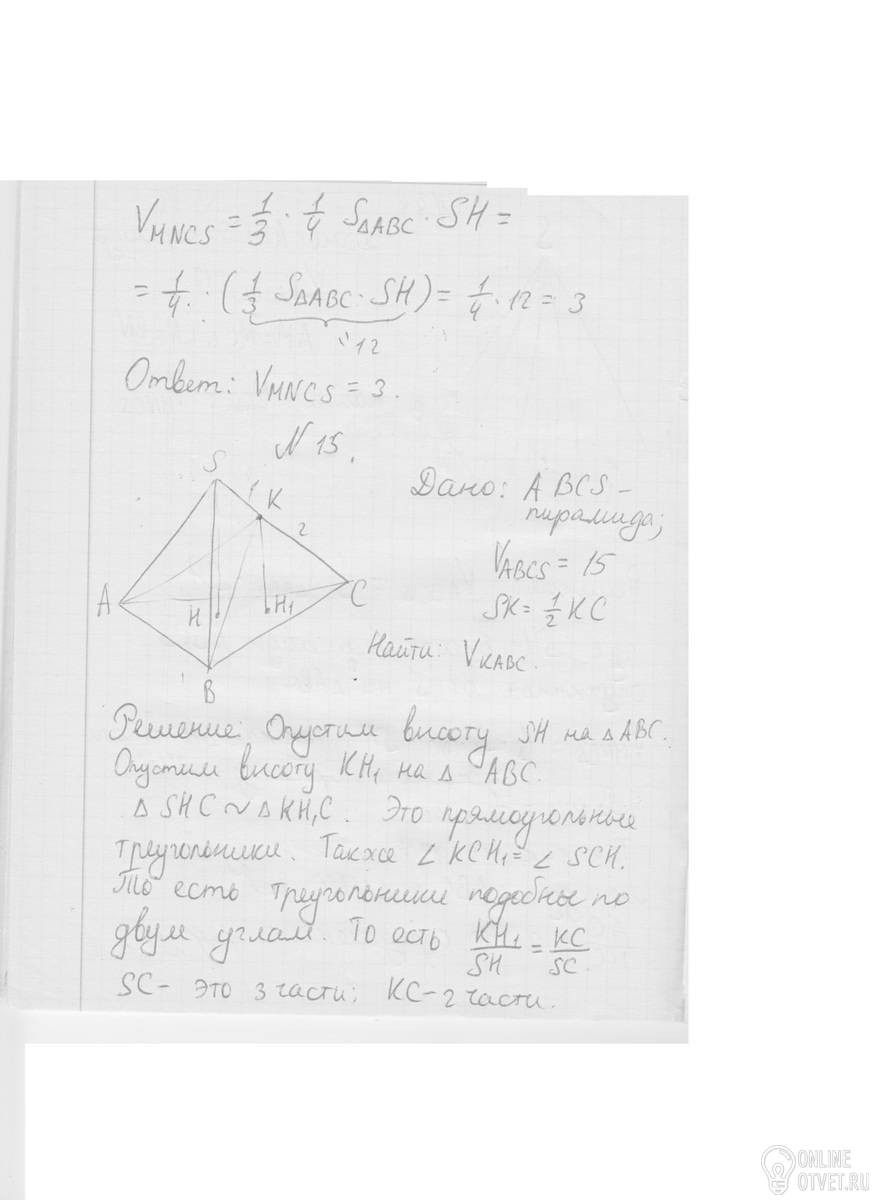 V_MNCS = 1/3 · 1/4 S_ΔABC · SH =
= 1/4 · (1/3 S_ΔABC · SH) = 1/4 · 12 = 3
"12
Ответ: V_MNCS = 3.
N 15.
S
1
K
2
A
H
H₁
C
B
Дано: ABCS –
пирамида;
V_ABCS = 15
SK = 1/2 KC
Найти: V_KABC.
Решение: Опустим висоту SH на Δ ABC.
Опустим висоту KH₁ на Δ ABC.
Δ SHC ~ Δ KH₁C. Это прямоугольные
треугольники. Также ∠ KCH₁ = ∠ SCH.
То есть треугольники подобны по
двум углам. То есть KH₁/SH = KC/SC.
SC – это 3 части; KC – 2 части.
ONLINE
OTVET.RU